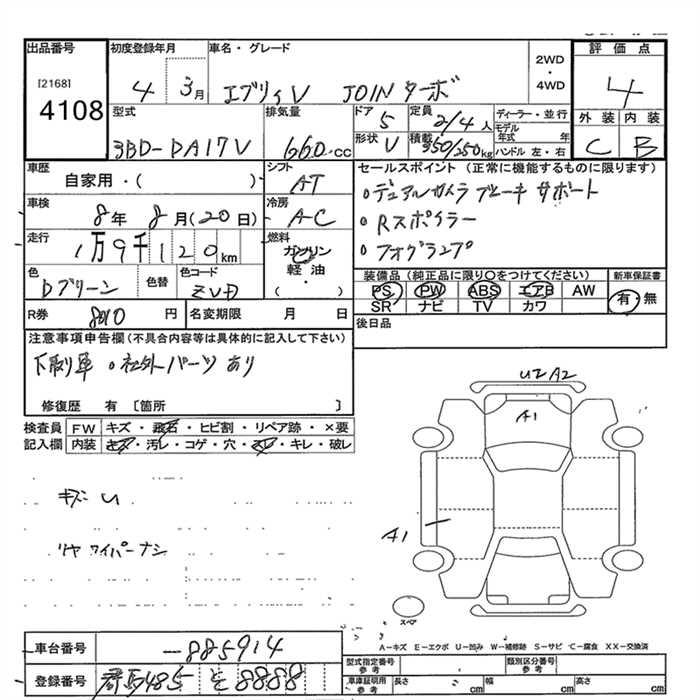 出品番号 初度登録年月 車名・グレード 評価点
[2168] 4 3月 エブリィV JOINターボ 2WD・4WD 4
4108 型式 排気量 ドア 定員 ディーラー・並行 外装 内装
3BD-DA17V 660cc 5 2/4人 モデル年式 年 C B
形状 V 積載 350/250kg ハンドル 左・右
車歴 シフト セールスポイント (正常に機能するものに限ります)
自家用・( ) AT
・デュアルカメラブレーキサポート
車検 冷房
8年 8月(20日) A-C ・Rスポイラー
走行 燃料
1万9千120km ガソリン・軽油・( ) ・フォグランプ
色 色替 色コード 装備品(純正品に限り○をつけてください) 新車保証書
Dグリーン ZVD PS PW ABS エアB AW 有・無
SR ナビ TV カワ
R券 8010円 名変期限 月 日 後日品
注意事項申告欄(不具合内容等は具体的に記入して下さい)
下取車 ・社外パーツあり
修復歴 有 [箇所 ]
検査員 FW キズ・飛石・ヒビ割・リペア跡・×要
記入欄 内装 キズ・汚レ・コゲ・穴・スレ・キレ・破レ
U2 A2
A1
キズ U
A1
リヤワイパーナシ
スペア
A-キズ E-エクボ U-凹み W-補修跡 S-サビ C-腐食 XX-交換済
車台番号 -885914
型式指定番号 参考 類別区分番号 参考
登録番号 群馬485 を 8888
車庫証明用 参考 長さ cm 幅 cm 高さ cm